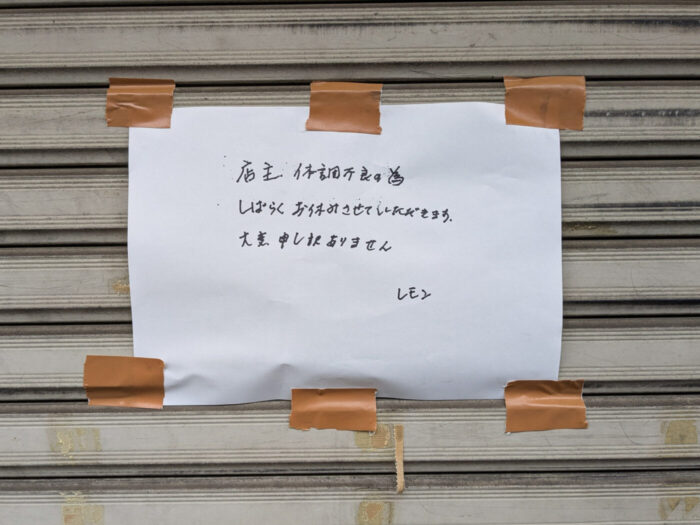 店主 体調不良の為
しばらく お休みさせていただきます。
大変 申し訳ありません
レモン